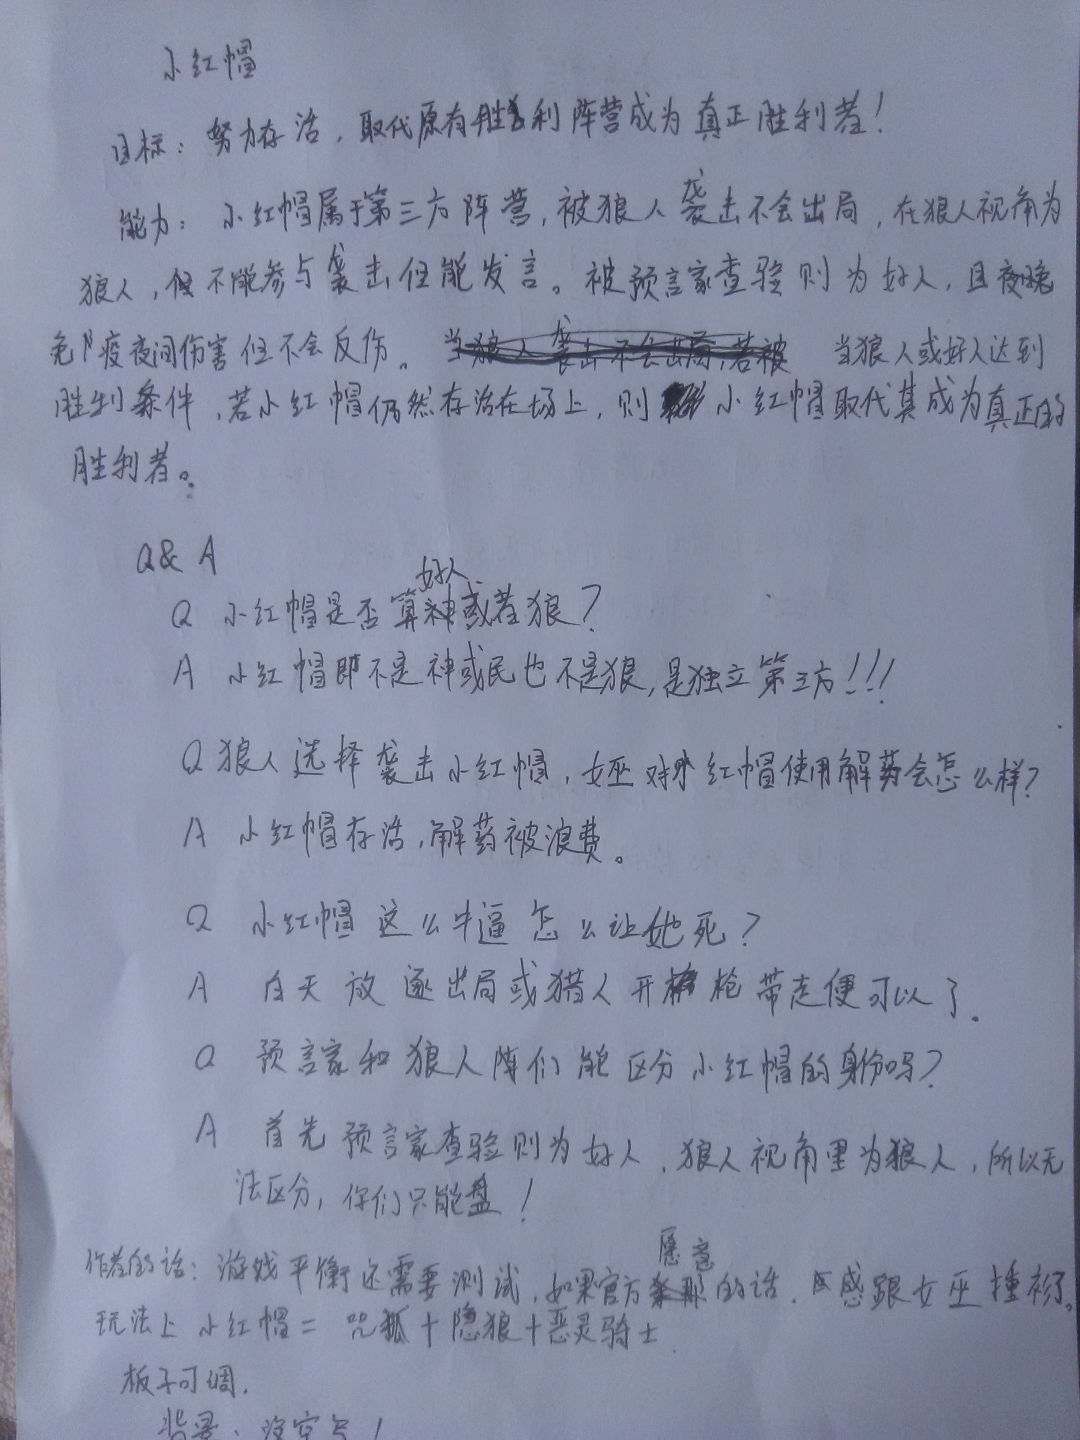 小红帽
目标：努力存活，取代原有胜利阵营成为真正胜利者！
能力：小红帽属于第三方阵营，被狼人袭击不会出局，在狼人视角为
狼人，但不能参与袭击但能发言。被预言家查验则为好人，且夜晚
免疫夜间伤害但不会反伤。当狼人袭击不会出局，若被 当狼人或好人达到
胜利条件，若小红帽仍然存活在场上，则小红帽取代其成为真正的
胜利者。
Q&A
好人
Q 小红帽是否算神或者狼？
A 小红帽即不是神或民也不是狼，是独立第三方！！！
Q 狼人选择袭击小红帽，女巫对小红帽使用解药会怎么样？
A 小红帽存活，解药被浪费。
Q 小红帽这么牛逼怎么让她死？
A 白天放逐出局或猎人开枪带走便可以了。
Q 预言家和狼人阵们能区分小红帽的身份吗？
A 首先预言家查验则为好人，狼人视角里为狼人，所以无
法区分，你们只能盘！
愿意
作者的话：游戏平衡还需要测试，如果官方的话，感跟女巫撞衫了。
玩法上小红帽＝咒狐＋隐狼＋恶灵骑士
板子可调.
背景：没空写！